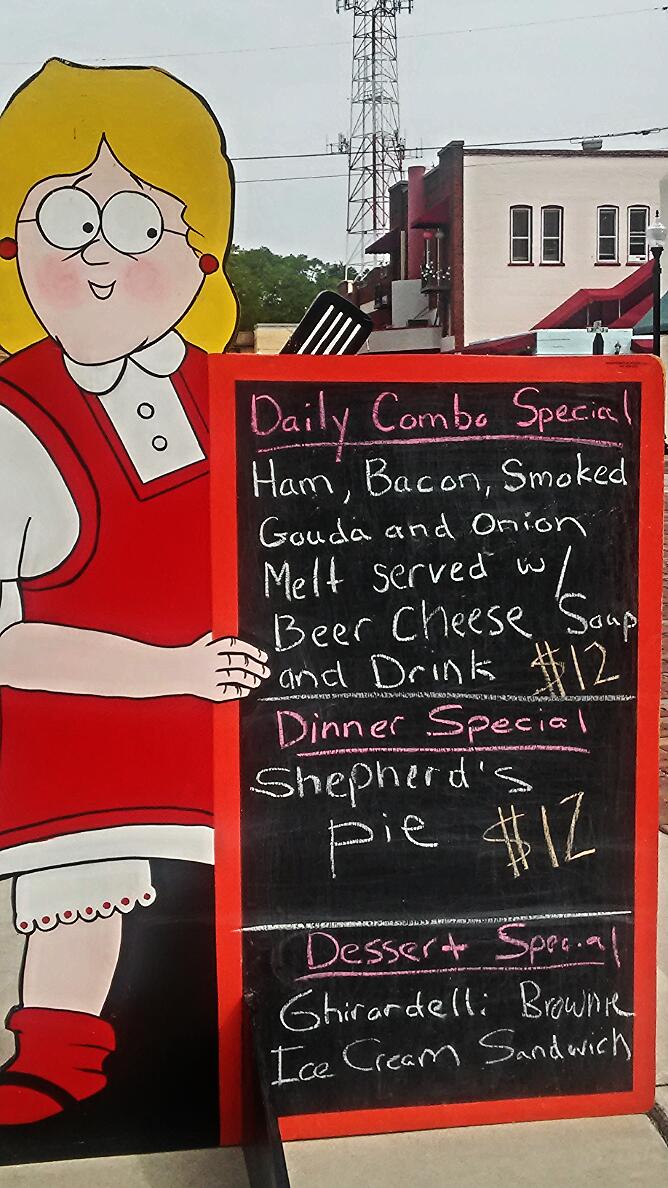 Daily Combo Special
Ham, Bacon, Smoked
Gouda and Onion
Melt served w/
Beer Cheese Soup
and Drink $12
Dinner Special
Shepherd's
pie $12
Dessert Special
Ghirardelli Brownie
Ice Cream Sandwich